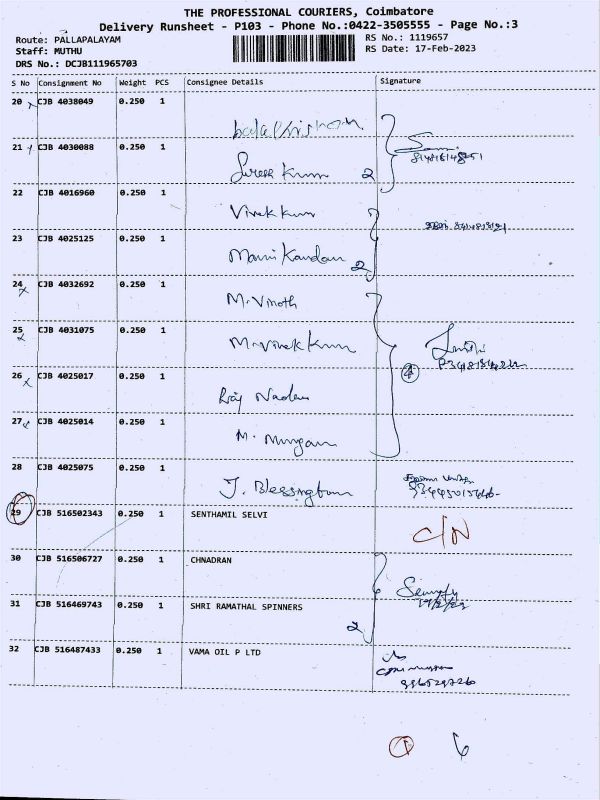 THE PROFESSIONAL COURIERS, Coimbatore
Delivery Runsheet - P103 - Phone No.:0422-3505555 - Page No.:3
Route: PALLAPALAYAM
RS No.: 1119657
Staff: MUTHU
RS Date: 17-Feb-2023
DRS No.: DCJB111965703
S No Consignment No Weight PCS Consignee Details Signature
20 CJB 4038049 0.250 1
21 CJB 4030088 0.250 1
Suresh Kumar 2
22 CJB 4016960 0.250 1
Vivek kum
23 CJB 4025125 0.250 1
Mani Kandan 2
24 CJB 4032692 0.250 1
M. Vinoth
25 CJB 4031075 0.250 1
M. Vivek Kum
26 CJB 4025017 0.250 1
4
Raj
27 CJB 4025014 0.250 1
M. Murugan
28 CJB 4025075 0.250 1
J. Blessington
29 CJB 516502343 0.250 1 SENTHAMIL SELVI
C/N
30 CJB 516506727 0.250 1 CHNADRAN
31 CJB 516469743 0.250 1 SHRI RAMATHAL SPINNERS
2
32 CJB 516487433 0.250 1 VAMA OIL P LTD
1 6